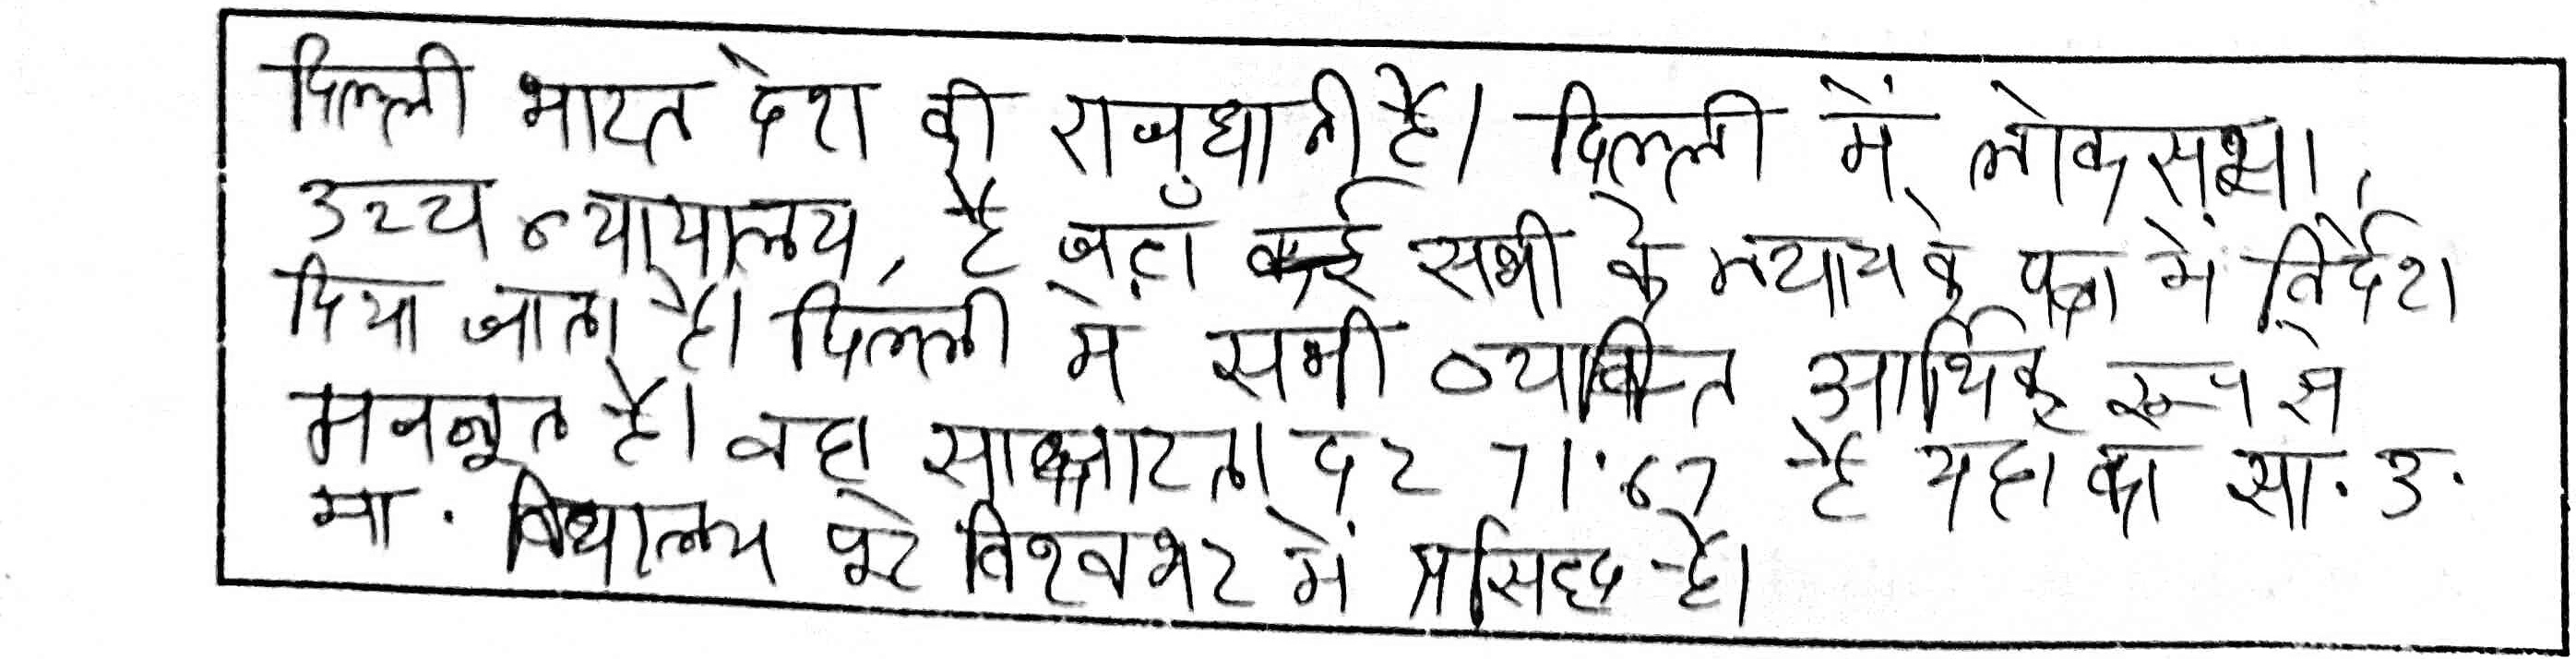 दिल्ली भारत देश की राजधानी है। दिल्ली में लोकसभा,
उच्च न्यायालय, है जहाँ कई सभी के न्याय के पक्ष में निर्देश
दिया जाता है। दिल्ली में सभी व्यक्ति आर्थिक रूप से
मजबूत है। वहा साक्षारता दर 71.67 है यहा का सा. उ.
मा. विधालय पूरे विश्वभर में प्रसिद्द है।